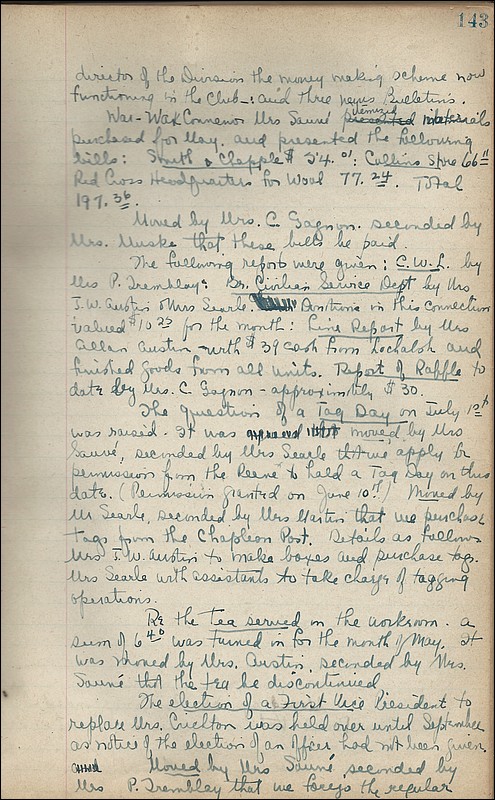 143
director of the Division the money making scheme now
functioning in the Club -: and three news Bulletins.
War-Work Convenor Mrs Sauvé itemized materials
purchased for May. and presented the following
bills: Smith & Chapple $54.01: Collins Store 66.11
Red Cross Headquarters for Wool 77.24. Total
197.36.
Moved by Mrs. C. Gagnon. seconded by
Mrs. Muske that these bills be paid.
The following reports were given: C.W.L. by
Mrs P. Tremblay: Br. Civilian Service Dept by Mrs
J.W. Austin & Mrs Searle. Donations in this connection
valued $10.23 for the month: Line Report by Mrs
Allan Austin - with $39 cash from Lochalsh and
finished goods from all units. Report of Raffle to
date by Mrs. C. Gagnon - approximately $30.
The question of a Tag Day on July 1st
was raised. It was moved by Mrs
Sauvé, seconded by Mrs Searle that we apply for
permission from the Reeve to hold a Tag Day on this
date. (Permission granted on June 10th) Moved by
M Searle, seconded by Mrs Martin that we purchase
tags from the Chapleau Post. Details as follows
Mrs J.W. Austin to make boxes and purchase tags.
Mrs Searle with assistants to take charge of tagging
operations.
Re the tea served in the workroom. a
sum of 6.40 was turned in for the month of May. It
was moved by Mrs. Austin, seconded by Mrs.
Sauvé that the tea be discontinued
The election of a First Vice President to
replace Mrs. Crichton was held over until September
as notice of the election of an Officer had not been given.
Moved by Mrs Sauvé, seconded by
Mrs P. Tremblay that we forego the regular